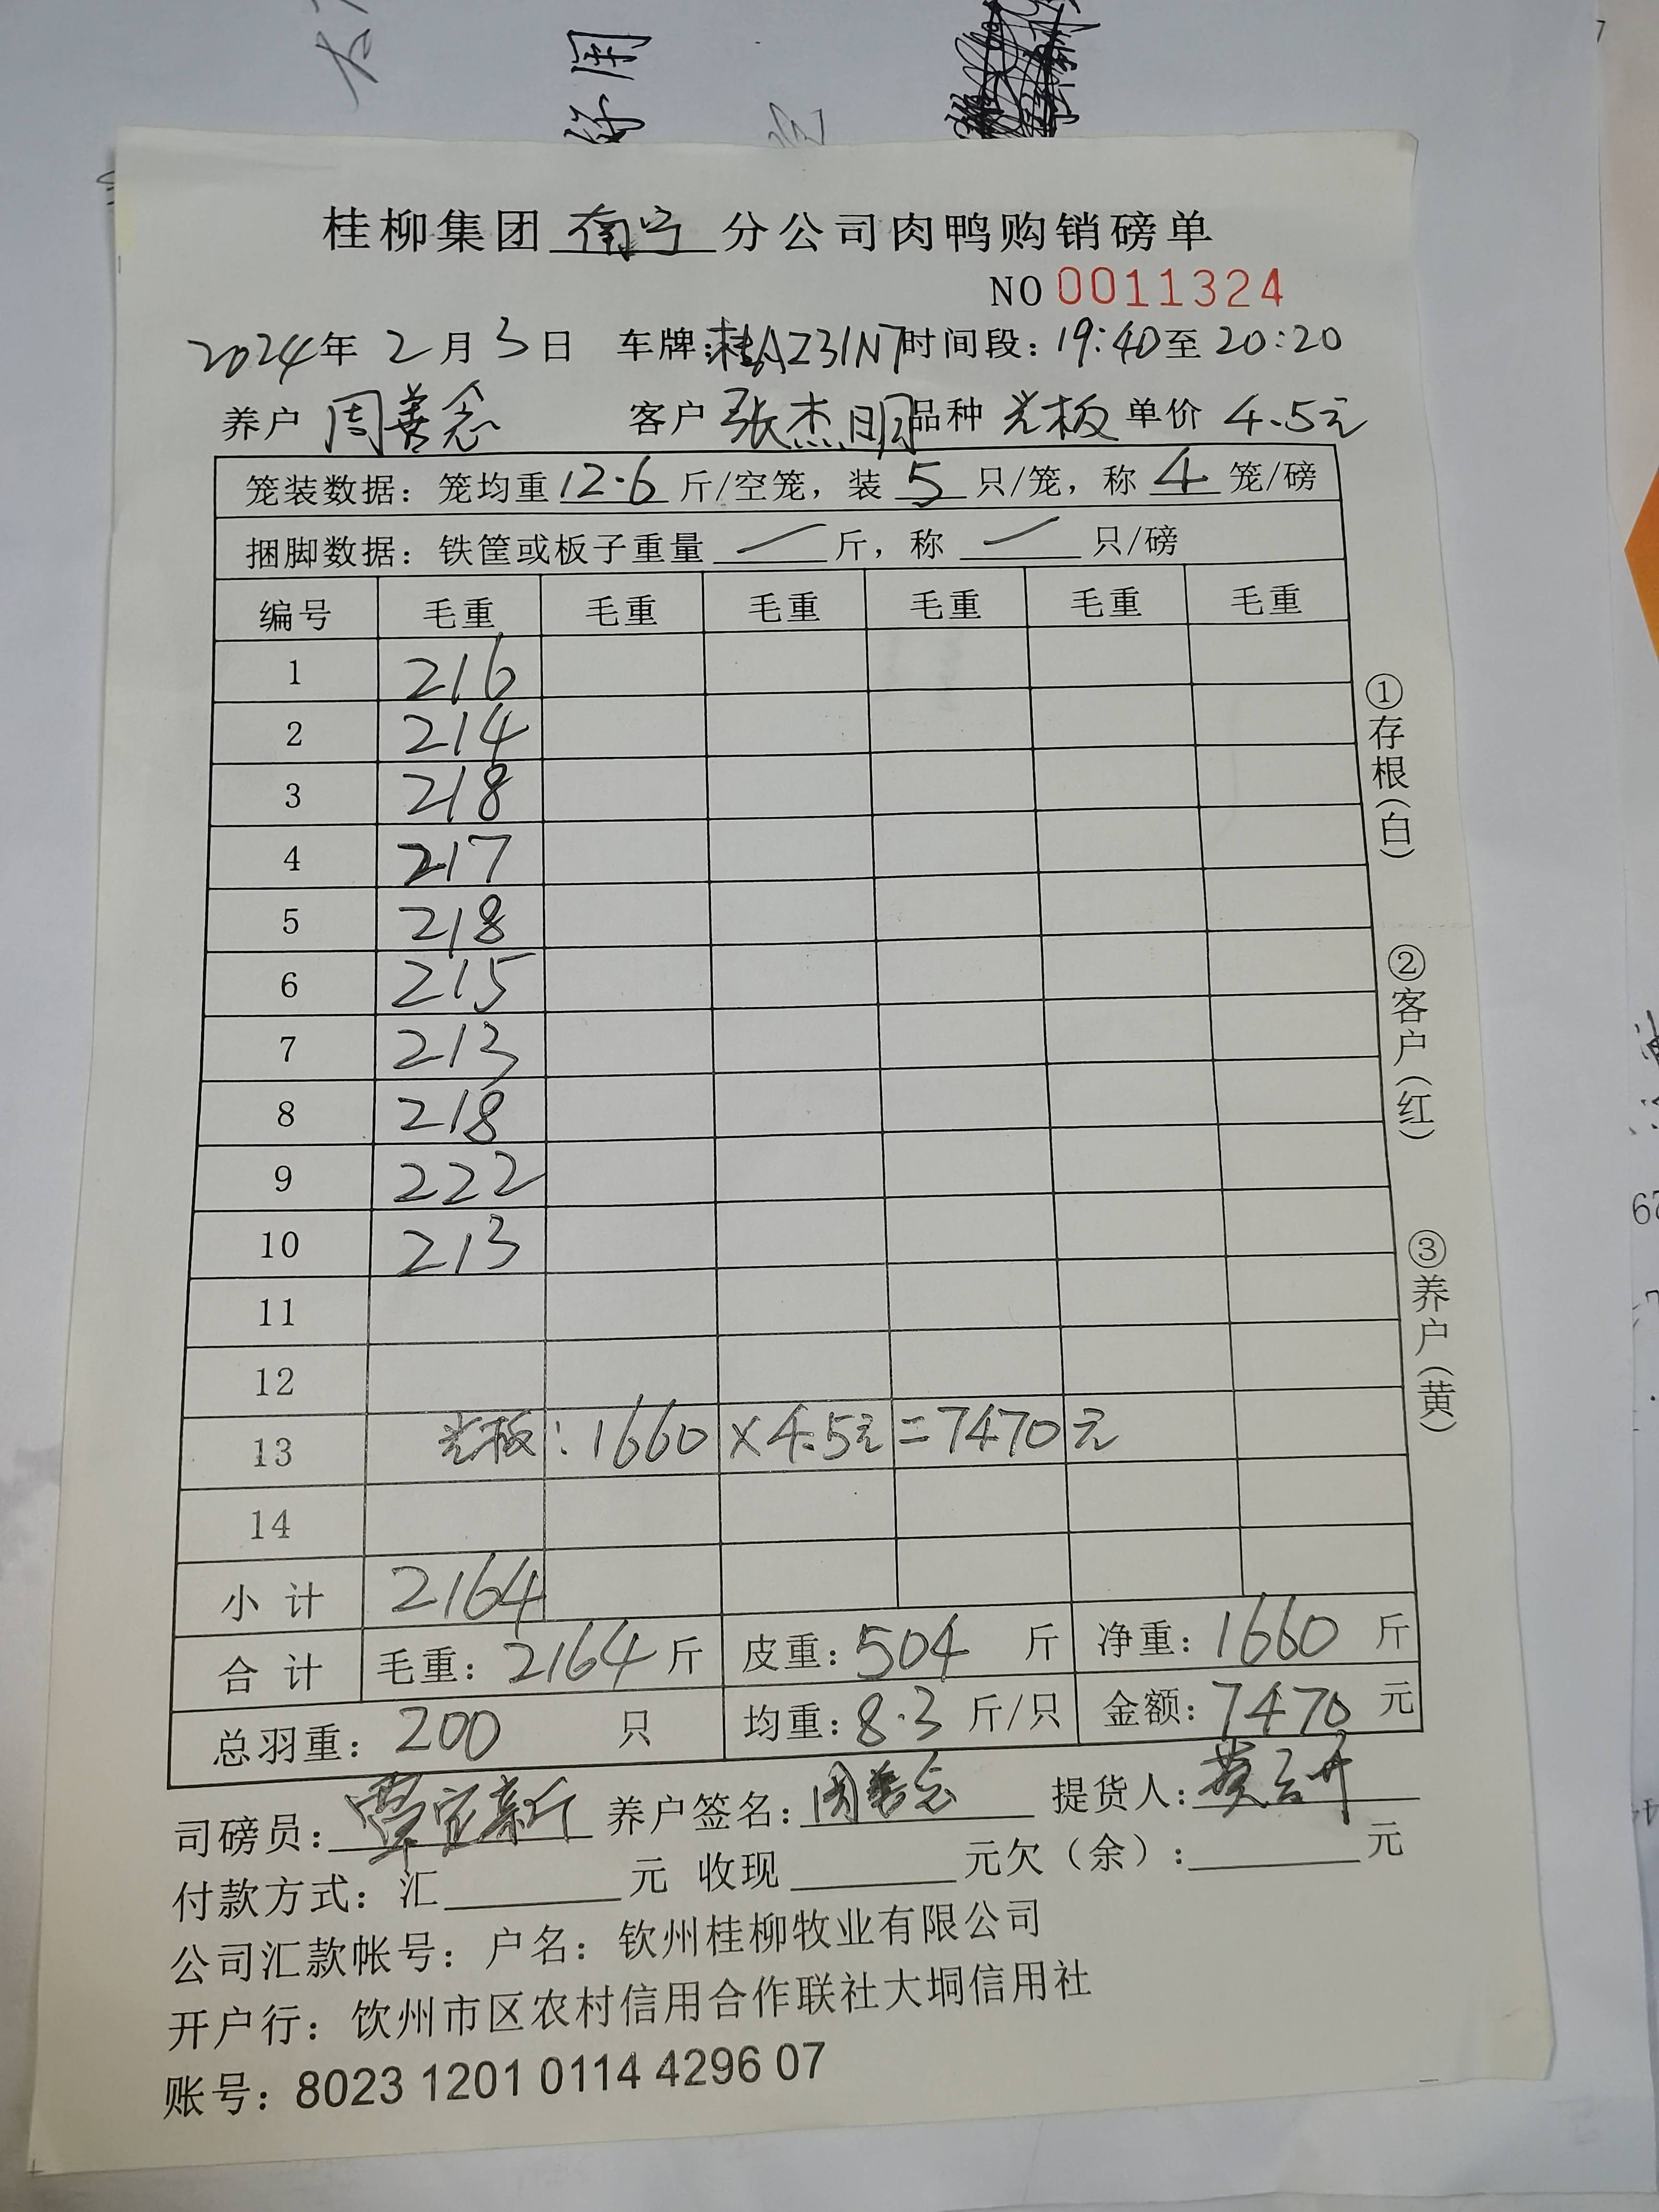 桂柳集团 南宁 分公司肉鸭购销磅单
NO 0011324
2024年 2月 3日 车牌:桂AZ31N7 时间段:19:40至20:20
养户 周善念 客户 张杰明 品种 光板 单价 4.5元
笼装数据:笼均重 12.6 斤/空笼,装 5 只/笼,称 4 笼/磅
捆脚数据:铁筐或板子重量 一 斤,称 一 只/磅
编号 毛重 毛重 毛重 毛重 毛重 毛重
1 216
2 214
3 218
4 217
5 218
6 215
7 213
8 218
9 222
10 213
11
12
13 光板:1660×4.5元=7470元
14
小计 2164
合计 毛重:2164斤 皮重:504 斤 净重:1660 斤
总羽重:200 只 均重:8.3 斤/只 金额:7470 元
司磅员:覃宝新 养户签名:周善念 提货人:
付款方式:汇 元 收现 元欠(余): 元
公司汇款帐号:户名:钦州桂柳牧业有限公司
开户行:钦州市区农村信用合作联社大垌信用社
账号:8023 1201 0114 4296 07
①存根(白)
②客户(红)
③养户(黄)